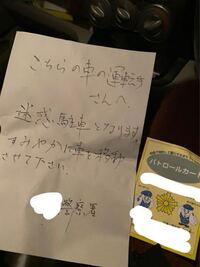 こちらの車の運転手
さんへ
迷惑駐車となります。
すみやかに車を移動
させて下さい。
警察署
パトロールカード